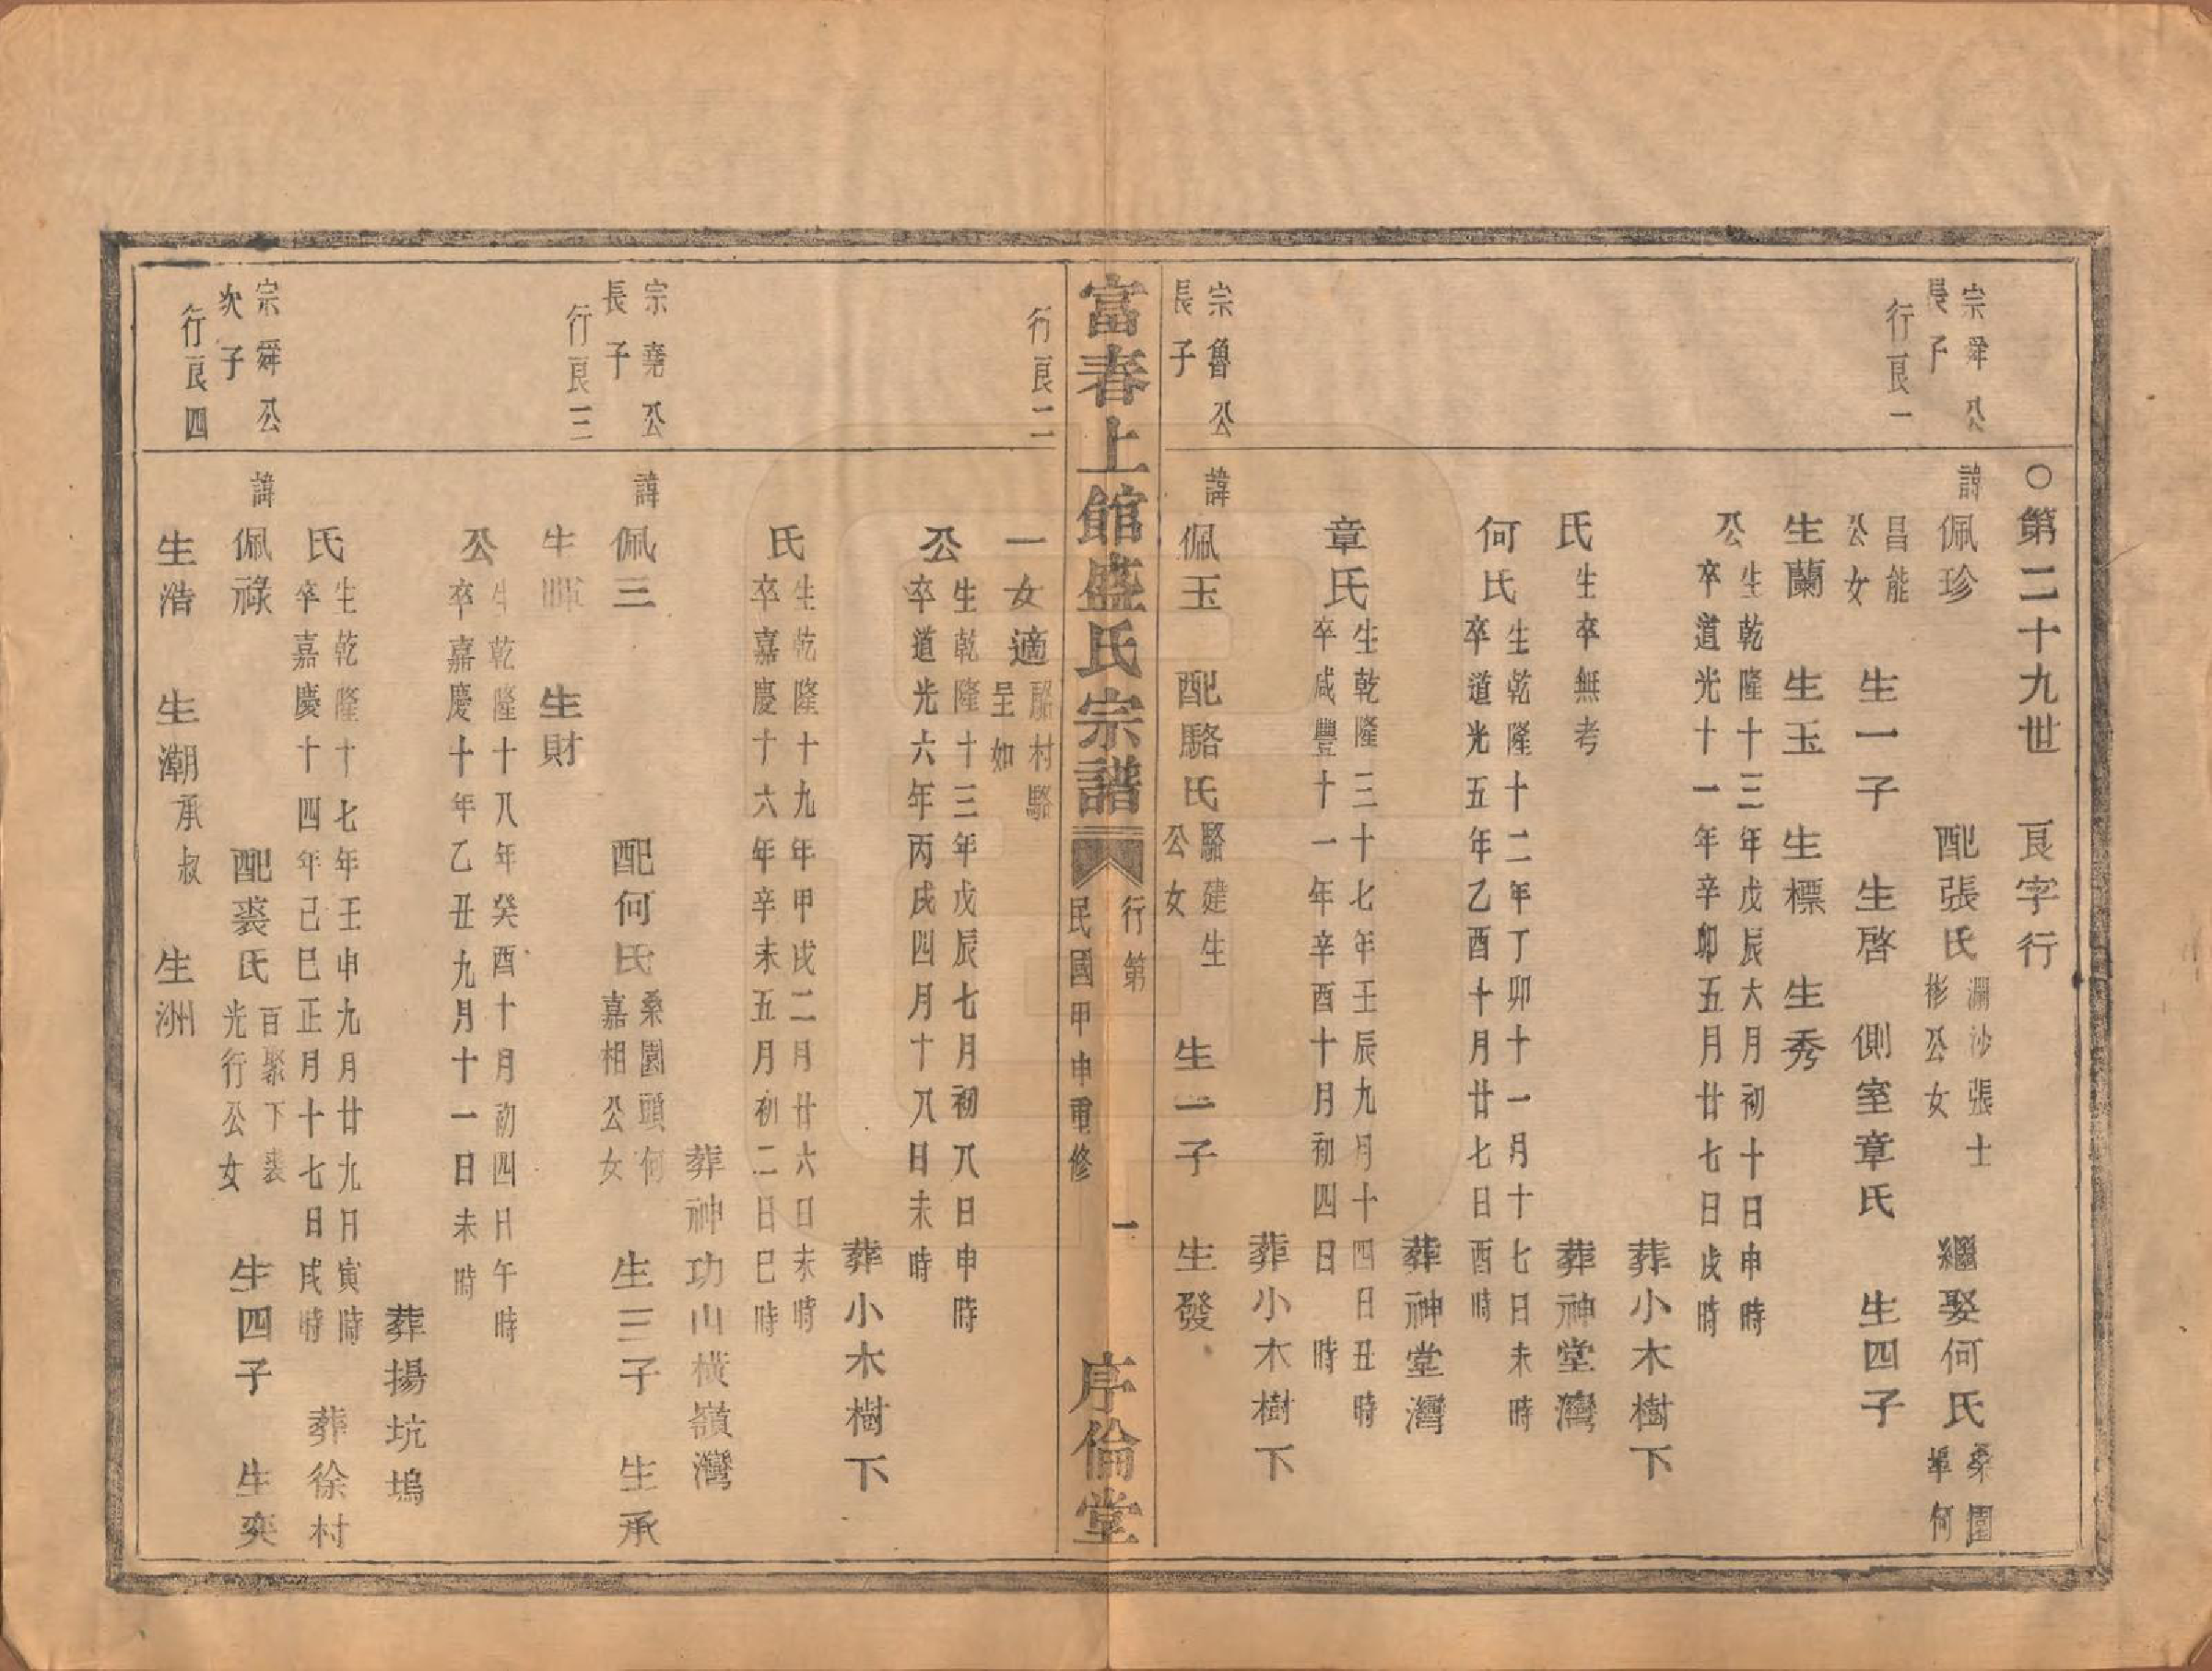 ○第二十九世　良字行
宗舜公
長子
行良一
諱佩珍　配張氏澗沙張士彬公女　繼娶何氏桑園埠何
昌能公女　生一子　生啓　側室章氏　生四子
生蘭　生玉　生標　生秀
公生乾隆十三年戊辰六月初十日申時
卒道光十一年辛卯五月廿七日戌時
葬小木樹下
氏生卒無考　葬神堂灣
何氏生乾隆十二年丁卯十一月十七日未時
卒道光五年乙酉十月廿七日酉時
葬神堂灣
章氏生乾隆三十七年壬辰九月十四日丑時
卒咸豐十一年辛酉十月初四日　時
葬小木樹下
宗魯公
長子
諱佩玉　配駱氏駱建生公女　生一子　生發
富春上館盛氏宗譜　行第　民國甲申重修　一　序倫堂
行良二
一女適駱村駱呈如
公生乾隆十三年戊辰七月初八日申時
卒道光六年丙戌四月十八日未時
葬小木樹下
氏生乾隆十九年甲戌二月廿六日未時
卒嘉慶十六年辛未五月初二日巳時
葬神功山橫嶺灣
宗堯公
長子
行良三
諱佩三　配何氏桑園頭何嘉相公女　生三子　生承
生暉　生財
公生乾隆十八年癸酉十月初四日午時
卒嘉慶十年乙丑九月十一日未時
葬揚坑塢
氏生乾隆十七年壬申九月廿九日寅時
卒嘉慶十四年己巳正月十七日戌時
葬徐村
宗舜公
次子
行良四
諱佩祿　配裘氏百聚下裘光行公女　生四子　生奕
生浩　生潮承叔　生洲